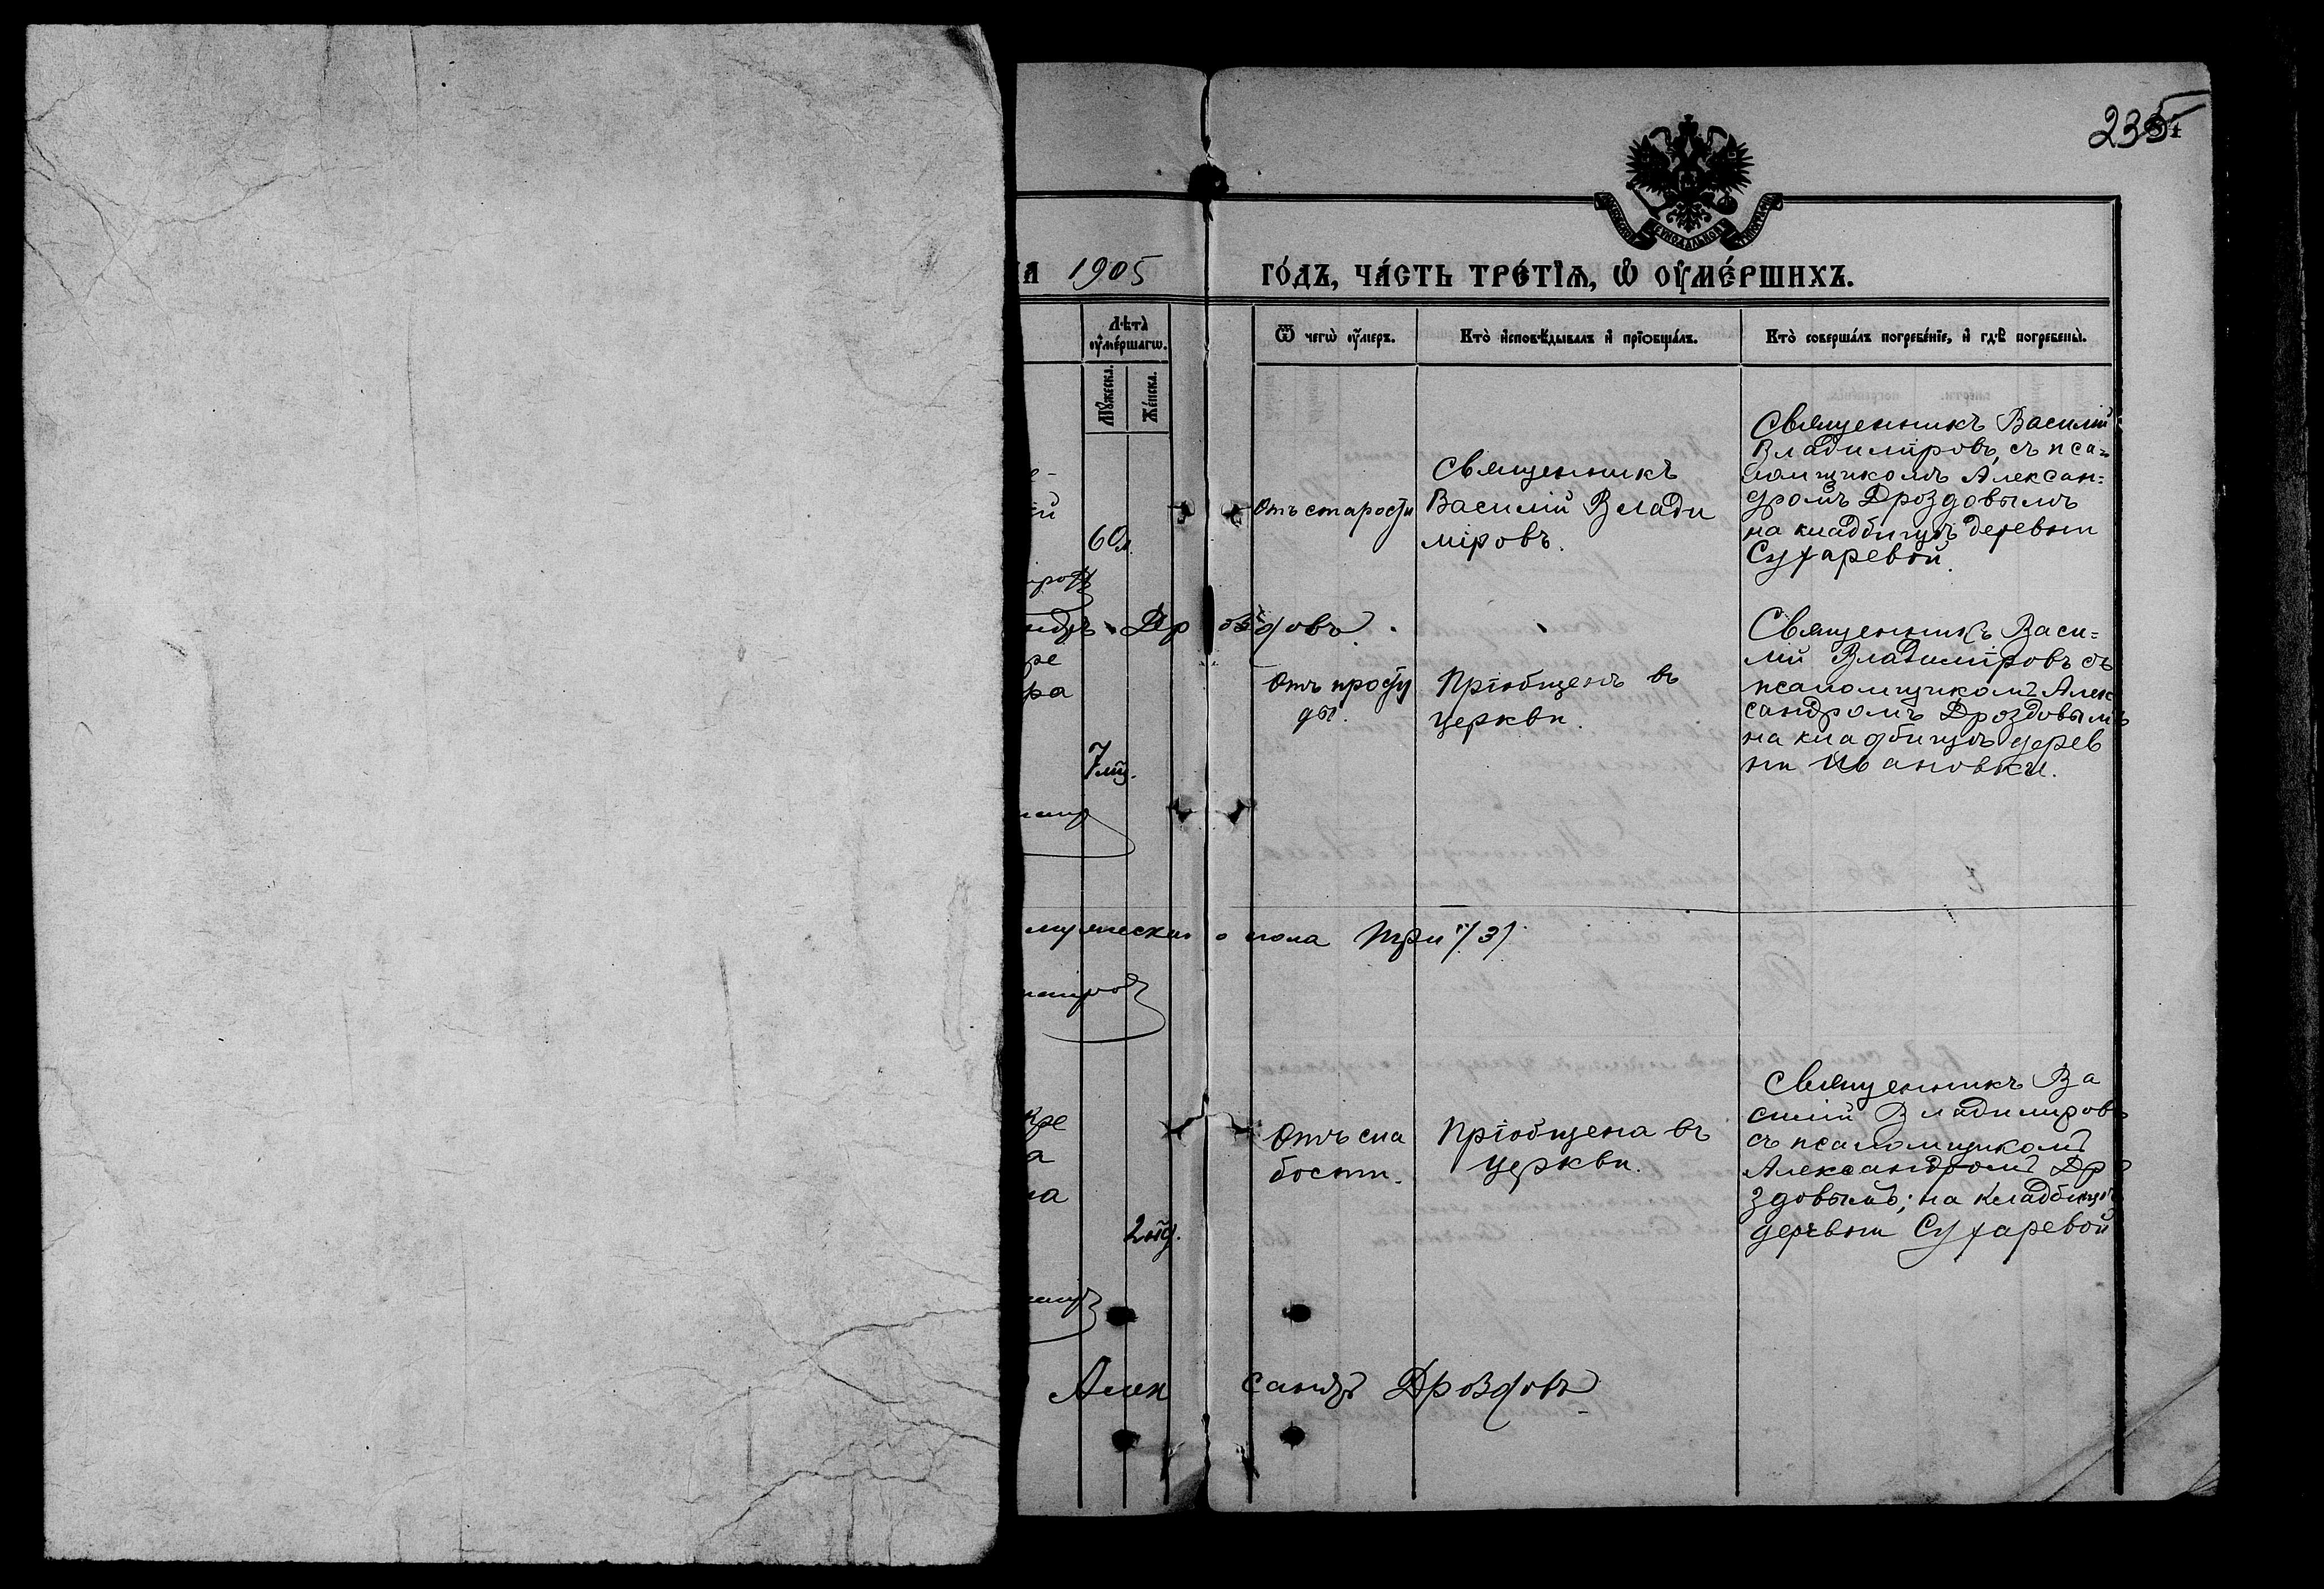 235
1905
го́дъ, ча́сть тре́тїѧ, ѡ҆ оу҆ме́ршихъ.
Лѣта̀ оу҆ме́ршагѡ.
Му́жеска.
Же́нска.
Ѿ чегѡ̀ оу҆́меръ.
Кто̀ и҆сповѣ́дывалъ и҆ прїѡбща́лъ.
Кто̀ соверша́лъ погребе́нїе, и҆ гдѣ̀ погребены̀.
60 л.
Отъ старости
Священникъ
Василій Влади
міровъ.
Священникъ Василій
Владиміровъ, съ пса=
ломщикомъ Алексан=
дромъ Дроздовымъ
на кладбищѣ деревни
Сухаревой.
Дроздовъ.
7 мц.
Отъ просту
ды.
Пріобщенъ въ
церкви.
Священникъ Васи=
лій Владиміровъ съ
псаломщикомъ Алек
сандромъ Дроздовымъ
на кладбищѣ дерев
ни Ивановки.
мужескаго пола три /3/
2 мц.
Отъ сла
бости.
Пріобщена въ
церкви.
Священникъ Ва
силій Владиміровъ
съ псаломщикомъ
Александромъ Дро
здовымъ; на кладбищѣ
деревни Сухаревой
Александръ Дроздовъ